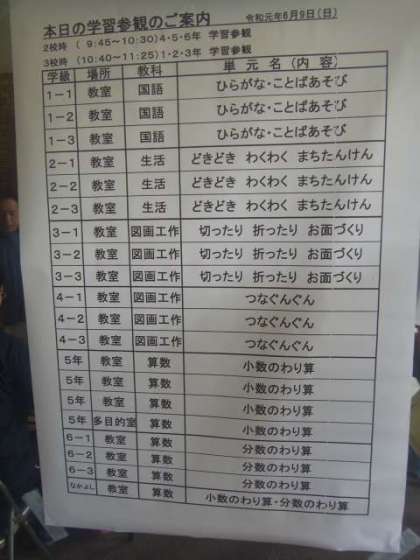 本日の学習参観のご案内 令和元年6月9日(日)
2校時 ( 9:45~10:30)4・5・6年 学習参観
3校時 (10:40~11:25)1・2・3年 学習参観
学級 場所 教科 単元名(内容)
1-1 教室 国語 ひらがな・ことばあそび
1-2 教室 国語 ひらがな・ことばあそび
1-3 教室 国語 ひらがな・ことばあそび
2-1 教室 生活 どきどき わくわく まちたんけん
2-2 教室 生活 どきどき わくわく まちたんけん
2-3 教室 生活 どきどき わくわく まちたんけん
3-1 教室 図画工作 切ったり 折ったり お面づくり
3-2 教室 図画工作 切ったり 折ったり お面づくり
3-3 教室 図画工作 切ったり 折ったり お面づくり
4-1 教室 図画工作 つなぐんぐん
4-2 教室 図画工作 つなぐんぐん
4-3 教室 図画工作 つなぐんぐん
5年 教室 算数 小数のわり算
5年 教室 算数 小数のわり算
5年 教室 算数 小数のわり算
5年 多目的室 算数 小数のわり算
6-1 教室 算数 分数のわり算
6-2 教室 算数 分数のわり算
6-3 教室 算数 分数のわり算
なかよし 教室 算数 小数のわり算・分数のわり算